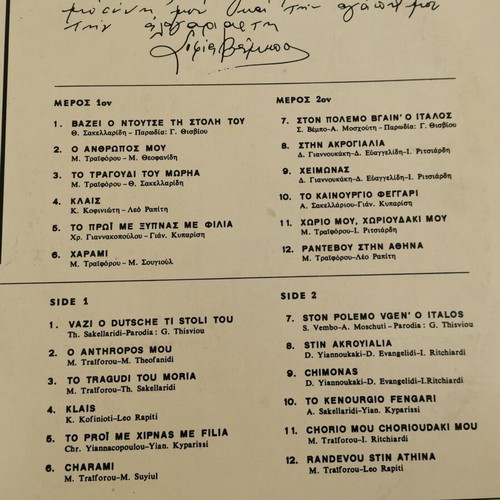 μου και την αγάπη μου
την
Σοφία Βέμπο
ΜΕΡΟΣ 1ον
1. ΒΑΖΕΙ Ο ΝΤΟΥΤΣΕ ΤΗ ΣΤΟΛΗ ΤΟΥ
Θ. Σακελλαρίδη - Παρωδία: Γ. Θισβίου
2. Ο ΑΝΘΡΩΠΟΣ ΜΟΥ
Μ. Τραϊφόρου - Μ. Θεοφανίδη
3. ΤΟ ΤΡΑΓΟΥΔΙ ΤΟΥ ΜΩΡΗΑ
Μ. Τραϊφόρου - Θ. Σακελλαρίδη
4. ΚΛΑΙΣ
Κ. Κοφινιώτη - Λεό Ραπίτη
5. ΤΟ ΠΡΩΪ ΜΕ ΞΥΠΝΑΣ ΜΕ ΦΙΛΙΑ
Χρ. Γιαννακοπούλου - Γιάν. Κυπαρίση
6. ΧΑΡΑΜΙ
Μ. Τραϊφόρου - Μ. Σουγιούλ
ΜΕΡΟΣ 2ον
7. ΣΤΟΝ ΠΟΛΕΜΟ ΒΓΑΙΝ' Ο ΙΤΑΛΟΣ
Σ. Βέμπο - Α. Μοσχούτη - Παρωδία: Γ. Θισβίου
8. ΣΤΗΝ ΑΚΡΟΓΙΑΛΙΑ
Δ. Γιαννουκάκη - Δ. Εὐαγγελίδη - Ι. Ριτσιάρδη
9. ΧΕΙΜΩΝΑΣ
Δ. Γιαννουκάκη - Δ. Εὐαγγελίδη - Ι. Ριτσιάρδη
10. ΤΟ ΚΑΙΝΟΥΡΓΙΟ ΦΕΓΓΑΡΙ
Α. Σακελλάριου - Γιάν. Κυπαρίση
11. ΧΩΡΙΟ ΜΟΥ, ΧΩΡΙΟΥΔΑΚΙ ΜΟΥ
Μ. Τραϊφόρου - Ι. Ριτσιάρδη
12. ΡΑΝΤΕΒΟΥ ΣΤΗΝ ΑΘΗΝΑ
Μ. Τραϊφόρου - Λέο Ραπίτη
SIDE 1
1. VAZI O DUTSCHE TI STOLI TOU
Th. Sakellaridi-Parodia: G. Thisviou
2. O ANTHROPOS MOU
M. Traïforou-M. Theofanidi
3. TO TRAGUDI TOU MORIA
M. Traïforou-Th. Sakellaridi
4. KLAIS
K. Kofinioti-Leo Rapiti
5. TO PROÏ ME XIPNAS ME FILIA
Chr. Yiannacopoulou-Yian. Kyparissi
6. CHARAMI
M. Traïforou-M. Suyiul
SIDE 2
7. STON POLEMO VGEN' O ITALOS
S. Vembo-A. Moschuti-Parodia: G. Thisviou
8. STIN AKROYIALIA
D. Yiannoukaki-D. Evangelidi-I. Ritchiardi
9. CHIMONAS
D. Yiannoukaki-D. Evangelidi-I. Ritchiardi
10. TO KENOURGIO FENGARI
A. Sakellaridi-Yian. Kyparissi
11. CHORIO MOU CHORIOUDAKI MOU
M. Traïforou-I. Ritchiardi
12. RANDEVOU STIN ATHINA
M. Traïforou-Leo Rapiti